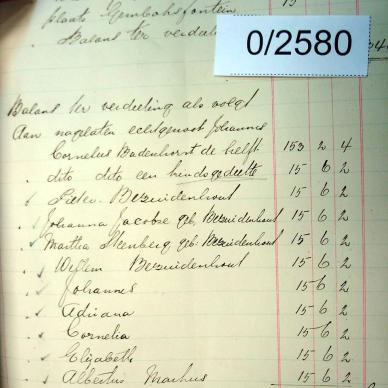 plaats Gembokfontein 15
Balans ter verdeeling
0/2580
Balans ter verdeeling als volgt
Aan nagelaten echtgenoot Johannes
Cornelius Badenhorst de helft 153 2 4
dito dito een kindsgedeelte 15 6 2
Bezuidenhout 15 6 2
Johanna Jacoba geb. Bezuidenhout 15 6 2
Martha Steenberg, geb. Bezuidenhout 15 6 2
Willem Bezuidenhout 15 6 2
Johannes 15 6 2
Adriana 15 6 2
Cornelia 15 6 2
Elizabeth 15 6 2
Albertus Marthus 15 6 2